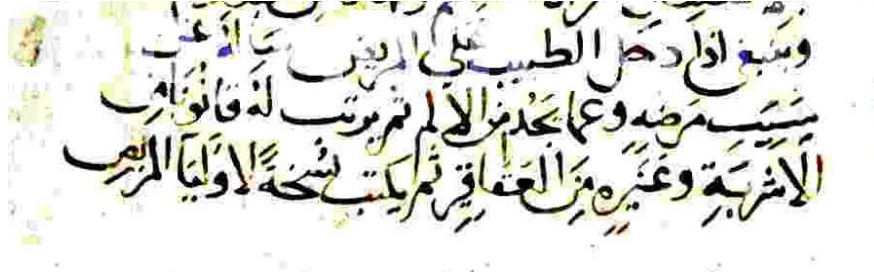 وينبغي اذا دخل الطبيب على المريض يساله عن
سبب مرضه وعما يجد من الالم ثم يرتب له قانونا من
الاشربة وغيره من العقاقير ثم يكتب نسخة لاولياء المريض